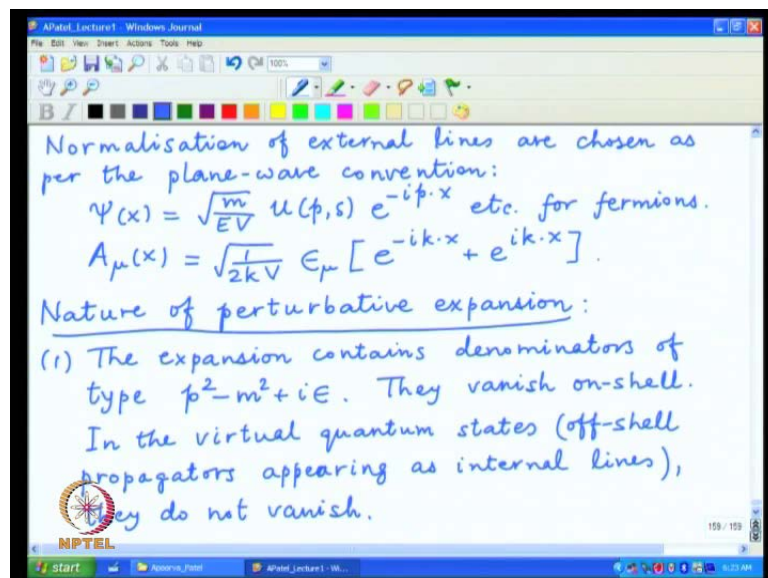 APatel_Lecture1 - Windows Journal
File Edit View Insert Actions Tools Help
100%
B I
Normalisation of external lines are chosen as
per the plane-wave convention:
Ψ(x) = √(m/EV) u(p,s) e^{-ip·x} etc. for fermions.
A_μ(x) = √(1/2kV) ϵ_μ [e^{-ik·x} + e^{ik·x}].
Nature of perturbative expansion:
(1) The expansion contains denominators of
type p²-m²+iϵ. They vanish on-shell.
In the virtual quantum states (off-shell
propagators appearing as internal lines),
they do not vanish.
159 / 159
NPTEL
start Apoorva_Patel APatel_Lecture1 - Wi... 6:23 AM